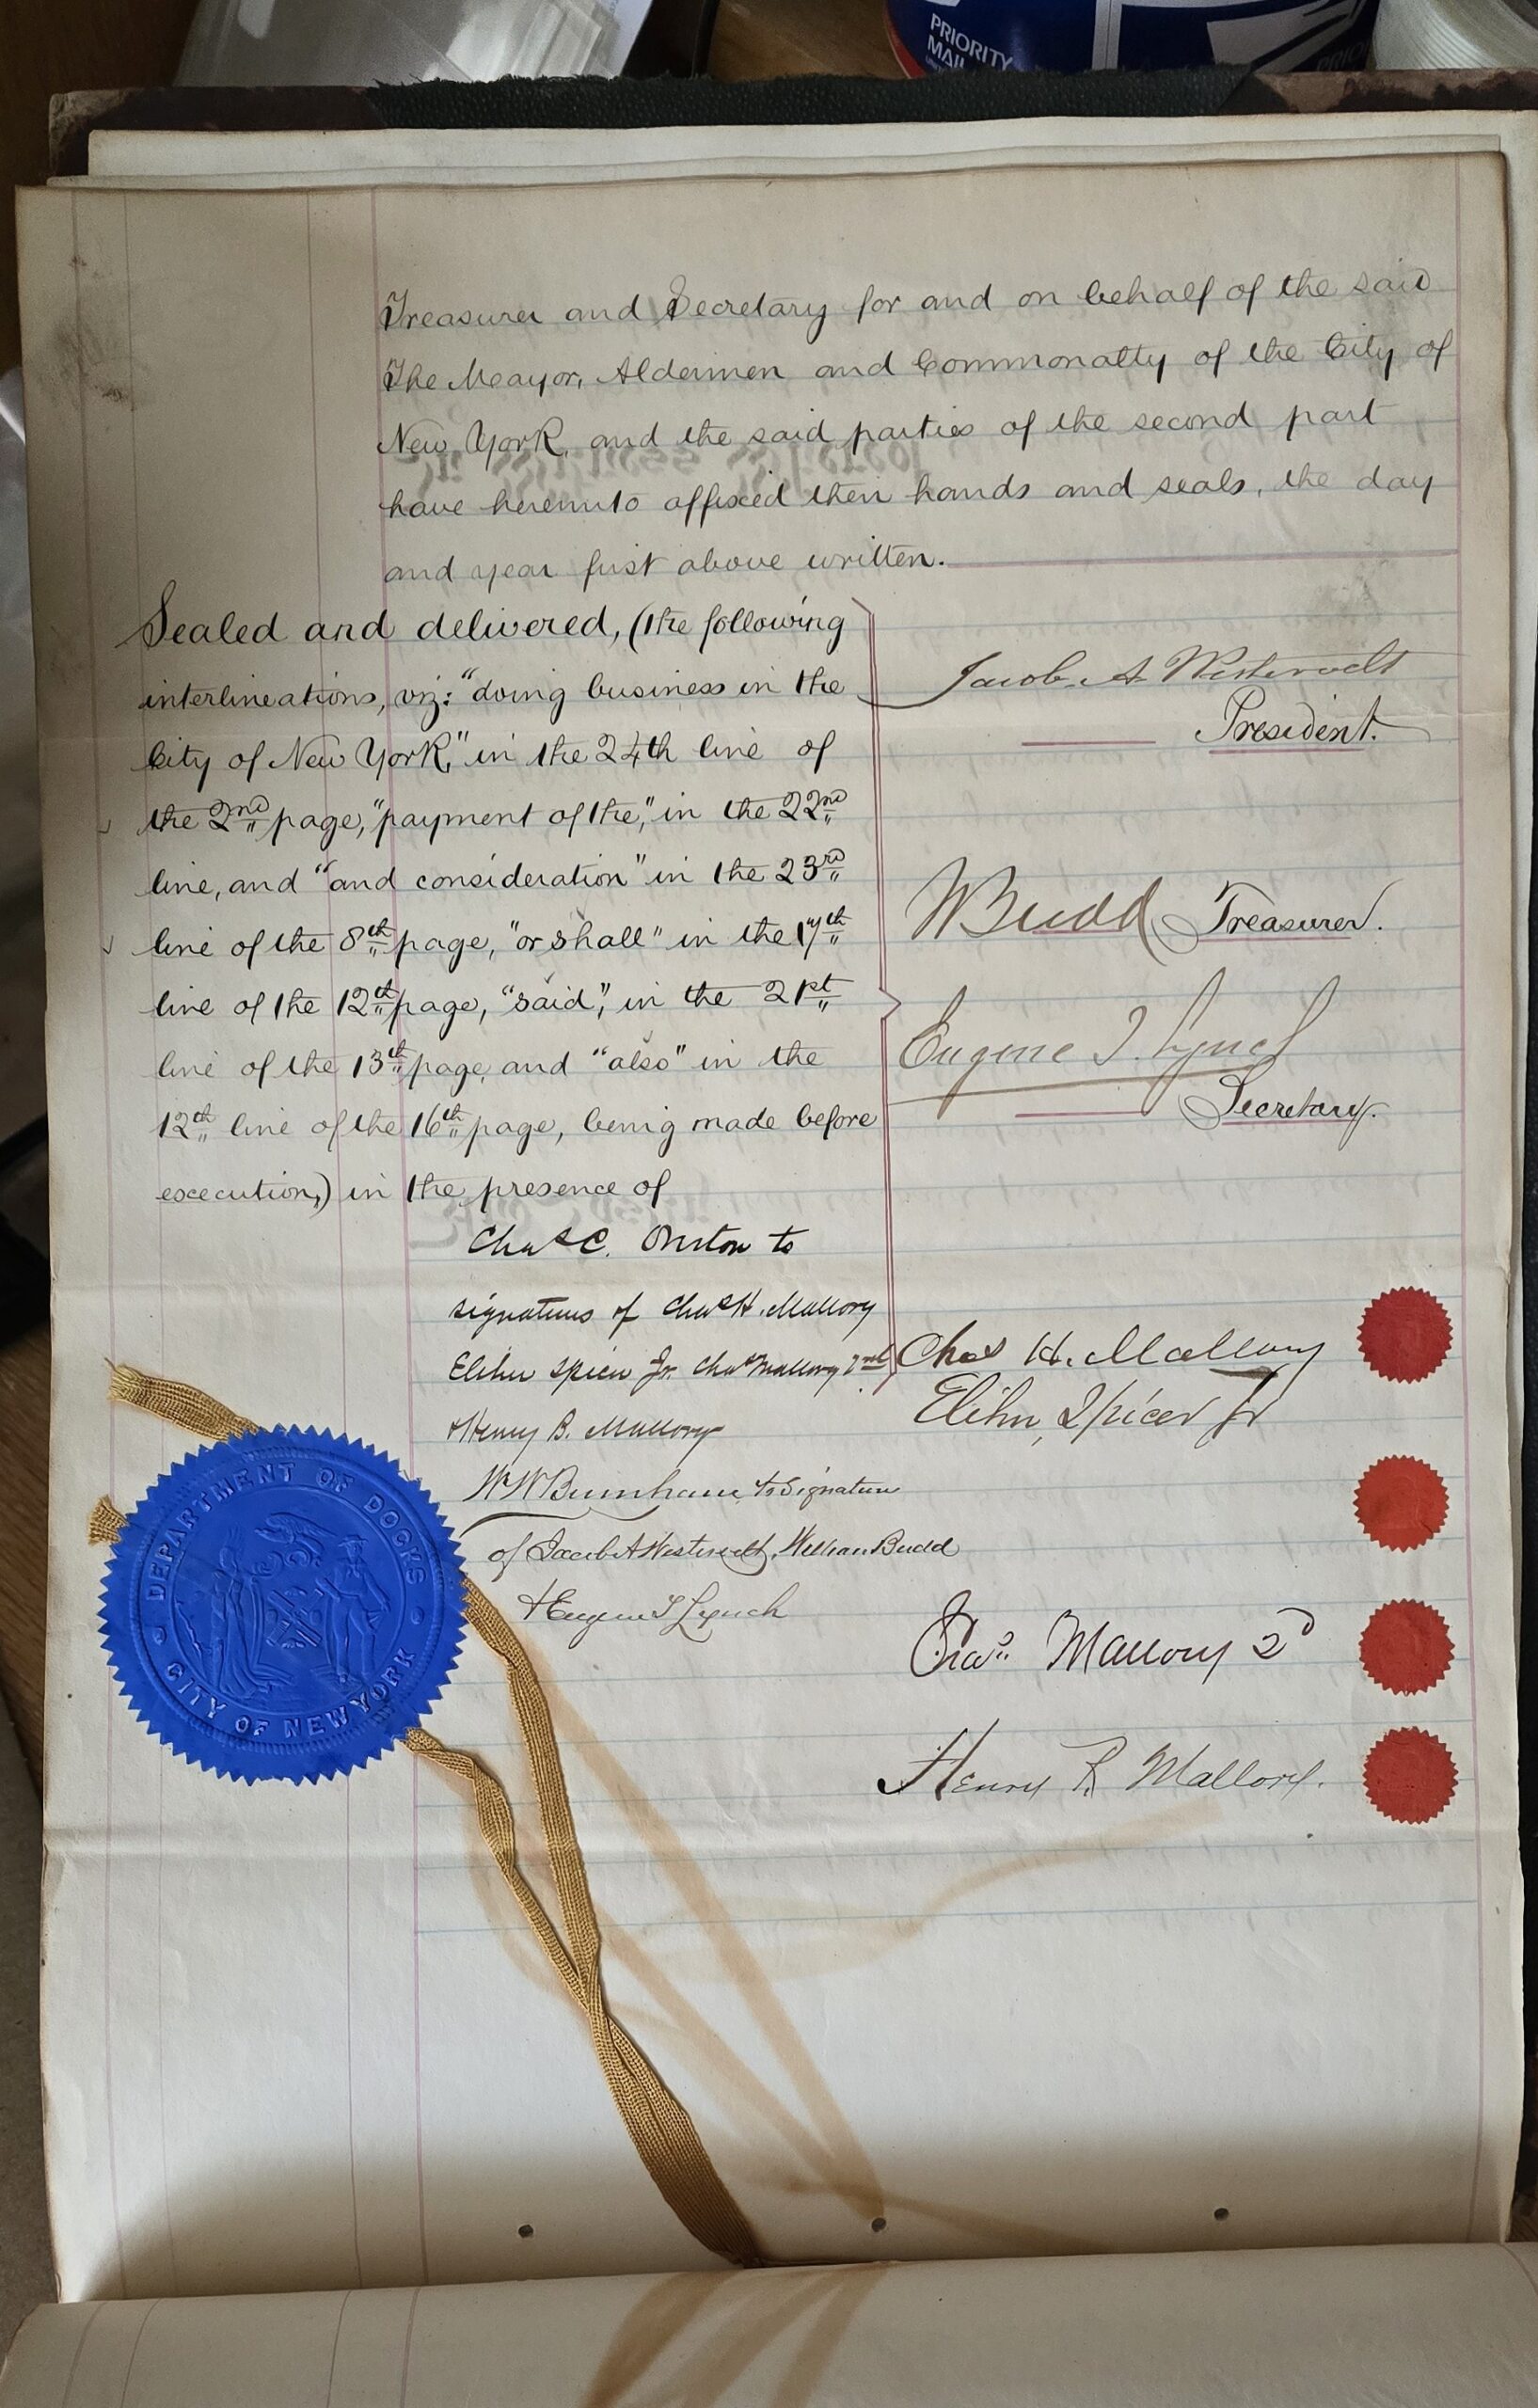 PRIORITY
MAIL
Treasurer and Secretary for and on behalf of the said
The Mayor, Aldermen and Commonalty of the City of
New York, and the said parties of the second part
have hereunto affixed their hands and seals, the day
and year first above written.
Sealed and delivered, (the following
interlineations, viz: "doing business in the
City of New York," in the 24th line of
the 2nd page, "payment of the," in the 22nd
line, and "and consideration" in the 23rd
line of the 8th page, "or shall" in the 17th
line of the 12th page, "said", in the 21st
line of the 13th page, and "also" in the
12th line of the 16th page, being made before
execution,) in the presence of
Jacob A Westervelt
President.
WBudd Treasurer.
Eugene T. Lynch
Secretary.
Chas C. to
signatures of Chas H. Mallory
Elihu Spicer Jr. Chas Mallory 2nd
Henry B. Mallory
WWBurnham to Signature
of Jacob A Westervelt, William Budd
+ Eugene T Lynch
Chas H. Mallory
Elihu Spicer Jr
Chas Mallory 2d
Henry R Mallory.
DEPARTMENT OF DOCKS
CITY OF NEW YORK